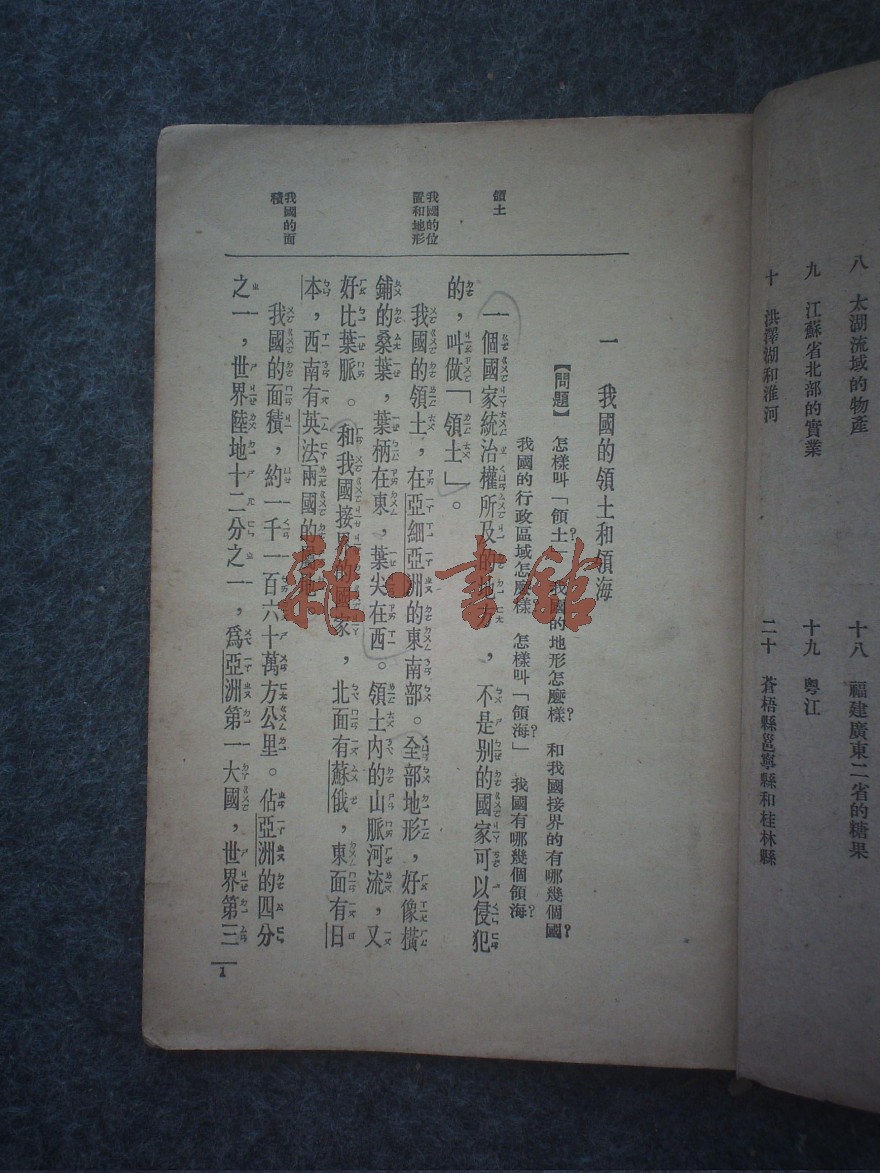 八　太湖流域的物產
十八　福建廣東二省的糖果
九　江蘇省北部的實業
十九　粵江
十　洪澤湖和淮河
二十　蒼梧縣邕寧縣和桂林縣
一　我國的領土和領海
【問題】　怎樣叫「領土」？　我國的地形怎麼樣？　和我國接界的有哪幾個國？
我國的行政區域怎麼樣？　怎樣叫「領海」？　我國有哪幾個領海？
領土
一個國家統治權所及的地方，不是別的國家可以侵犯
的，叫做「領土」。
我國的位
置和地形
我國的領土，在亞細亞洲的東南部。全部地形，好像橫
鋪的桑葉，葉柄在東，葉尖在西。領土內的山脈河流，又
好比葉脈。和我國接界的國家，北面有蘇俄，東面有日
本，西南有英法兩國的屬地。
我國的面
積
我國的面積，約一千一百六十萬方公里。佔亞洲的四分
之一，世界陸地十二分之一，爲亞洲第一大國，世界第三
1
雜·書館